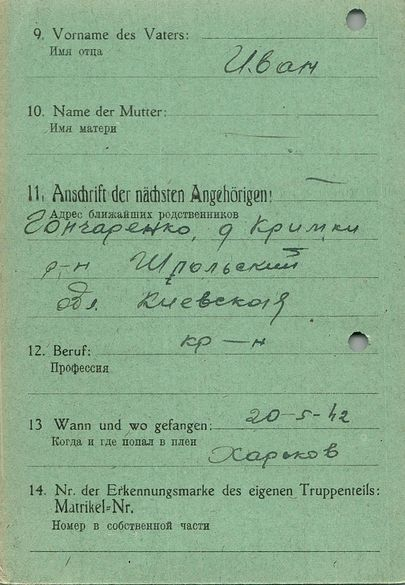 9. Vorname des Vaters:
Имя отца
Иван
10. Name der Mutter:
Имя матери
—
11. Anschrift der nächsten Angehörigen:
Адрес ближайших родственников
Гончаренко, д Кримки
р-н Шпольский
обл. Киевская
12. Beruf: кр—н
Профессия
13 Wann und wo gefangen: 20-5-42
Когда и где попал в плен
Харьков
14. Nr. der Erkennungsmarke des eigenen Truppenteils:
Matrikel=Nr.
Номер в собственной части